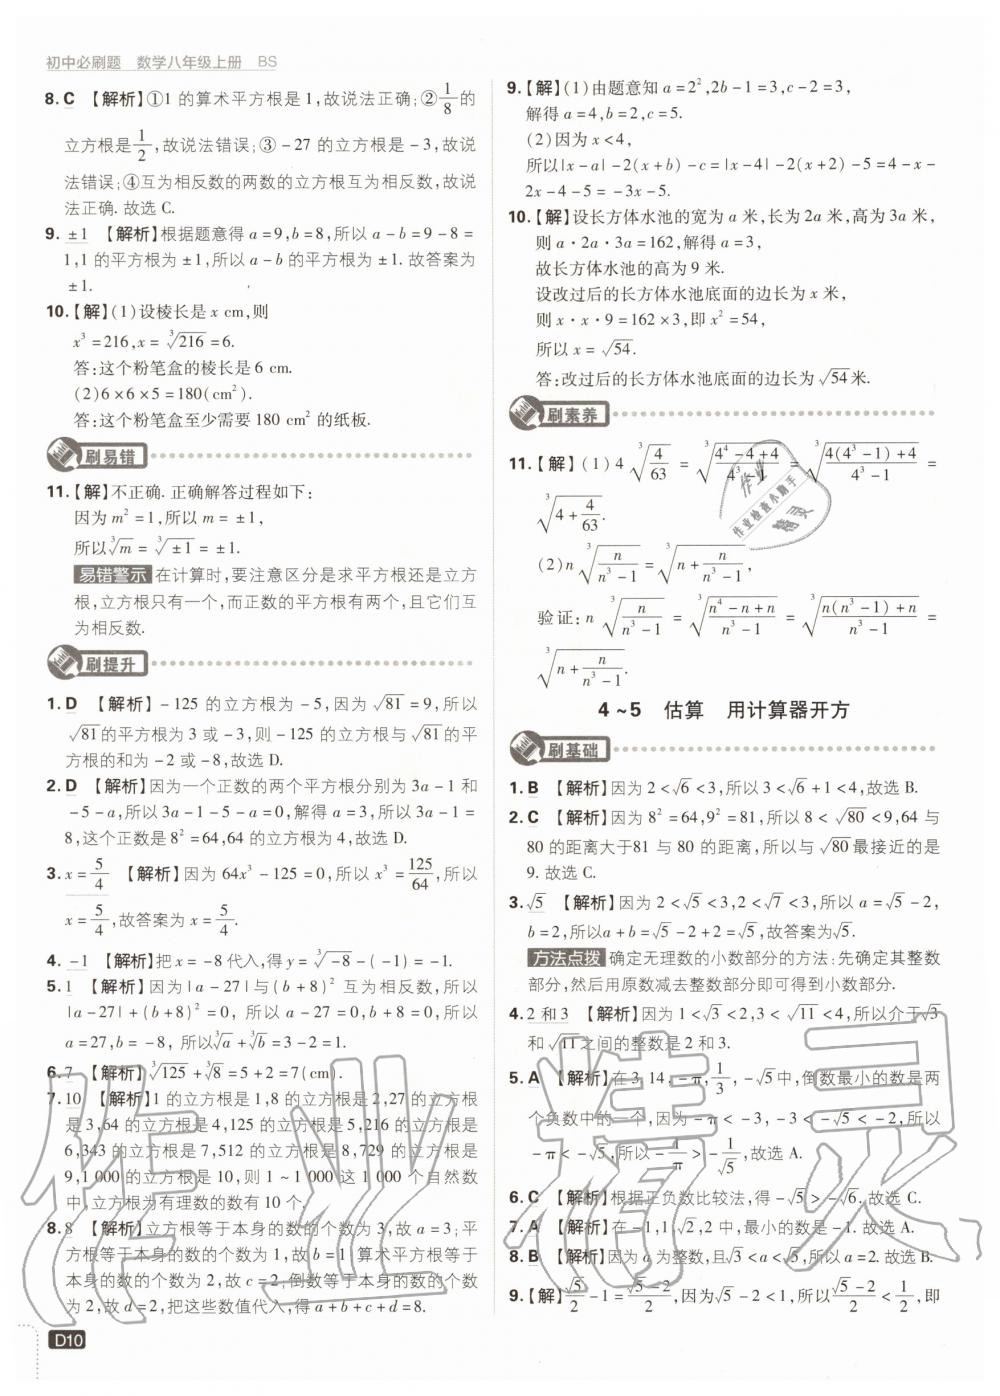 初中必刷题 数学八年级上册 BS
8. C 【解析】①1 的算术平方根是 1,故说法正确;②1/8 的
立方根是 1/2,故说法错误;③-27 的立方根是-3,故说
法错误;④互为相反数的两数的立方根互为相反数,故说
法正确. 故选 C.
9. ±1 【解析】根据题意得 a=9,b=8,所以 a-b=9-8=
1,1 的平方根为±1,所以 a-b 的平方根为±1. 故答案为
±1.
10.【解】(1)设棱长是 x cm,则
x³=216,x=∛216=6.
答:这个粉笔盒的棱长是 6 cm.
(2)6×6×5=180(cm²)
答:这个粉笔盒至少需要 180 cm² 的纸板.
刷易错
11.【解】不正确. 正确解答过程如下:
因为 m²=1,所以 m=±1,
所以∛m=∛±1=±1.
易错警示 在计算时,要注意区分是求平方根还是立方
根,立方根只有一个,而正数的平方根有两个,且它们互
为相反数.
刷提升
1. D 【解析】-125 的立方根为-5,因为√81=9,所以
√81的平方根为 3 或-3,则-125 的立方根与√81的平
方根的和为-2 或-8. 故选 D.
2. D 【解析】因为一个正数的两个平方根分别为 3a-1 和
-5-a,所以 3a-1-5-a=0,解得 a=3,所以 3a-1=
8,这个正数是 8²=64,64 的立方根为 4,故选 D.
3. x=5/4 【解析】因为 64x³-125=0,所以 x³=125/64,所以
x=5/4,故答案为 x=5/4.
4. -1 【解析】把 x=-8 代入,得 y=∛-8-(-1)=-1.
5. 1 【解析】因为|a-27|与(b+8)² 互为相反数,所以
|a-27|+(b+8)²=0,所以 a-27=0,b+8=0,所以
a=27,b=-8,所以∛a+∛b=3-2=1.
6. 7 【解析】∛125+∛8=5+2=7(cm).
7. 10 【解析】1 的立方根是 1,8 的立方根是 2,27 的立方根
是 3,64 的立方根是 4,125 的立方根是 5,216 的立方根是
6,343 的立方根是 7,512 的立方根是 8,729 的立方根是
9,1 000 的立方根是 10,则 1~1 000 这 1 000 个自然数
中,立方根为有理数的数有 10 个.
8. 8 【解析】立方根等于本身的数的个数为 3,故 a=3;平
方根等于本身的数的个数为 1,故 b=1;算术平方根等于
本身的数的个数为 2,故 c=2,倒数等于本身的数的个数
为 2,故 d=2,把这些数值代入,得 a+b+c+d=8.
D10
9.【解】(1)由题意知 a=2²,2b-1=3,c-2=3,
解得 a=4,b=2,c=5.
(2)因为 x<4,
所以|x-a|-2(x+b)-c=|x-4|-2(x+2)-5=4-x-
2x-4-5=-3x-5.
10.【解】设长方体水池的宽为 a 米,长为 2a 米,高为 3a 米,
则 a·2a·3a=162,解得 a=3,
故长方体水池的高为 9 米.
设改过后的长方体水池底面的边长为 x 米,
则 x·x·9=162×3,即 x²=54,
所以 x=√54.
答:改过后的长方体水池底面的边长为√54米.
刷素养
11.【解】(1)4∛(4/63)=∛((4⁴-4+4)/(4³-1))=∛((4(4³-1)+4)/(4³-1))=
∛(4+4/63).
(2)n∛(n/(n³-1))=∛(n+n/(n³-1)),
验证:n∛(n/(n³-1))=∛((n⁴-n+n)/(n³-1))=∛((n(n³-1)+n)/(n³-1))=
∛(n+n/(n³-1)).
4~5 估算 用计算器开方
刷基础
1. B 【解析】因为 2<√6<3,所以 3<√6+1<4,故选 B.
2. C 【解析】因为 8²=64,9²=81,所以 8<√80<9,64 与
80 的距离大于81 与 80 的距离,所以与√80最接近的是
9. 故选 C.
3. √5 【解析】因为 2<√5<3,2<√7<3,所以 a=√5-2,
b=2,所以 a+b=√5-2+2=√5,故答案为√5.
方法点拨 确定无理数的小数部分的方法:先确定其整数
部分,然后用原数减去整数部分即可得到小数部分.
4. 2 和 3 【解析】因为 1<√3<2,3<√11<4,所以介于√3
和√11之间的整数是 2 和 3.
5. A 【解析】在 3.14,-π,1/3,-√5中,倒数最小的数是两
个负数中的一个,因为-π<-3,-3<-√5<-2,所以
-π<-√5,所以-1/π>-1/√5,故选 A.
6. C 【解析】根据正负数比较法,得-√5>-√6. 故选 C.
7. A 【解析】在-1,1,√2,2 中,最小的数是-1. 故选 A.
8. B 【解析】因为 a 为整数,且√3<a<√5,所以 a=2. 故选 B.
9.【解】√5/2-1=(√5-2)/2,因为√5-2<1,所以(√5-2)/2<1/2,即
作业
作业检查小助手
精灵
作业精灵